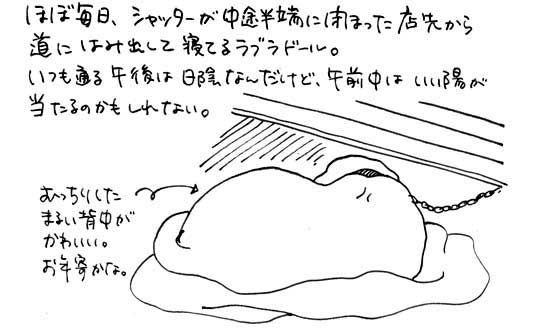 ほぼ毎日、シャッターが中途半端に閉まった店先から
道にはみ出して寝てるラブラドール。
いつも通る午後は日陰なんだけど、午前中はいい陽が
当たるのかもしれない。
むっちりした
まるい背中が
かわいい。
お年寄かな。